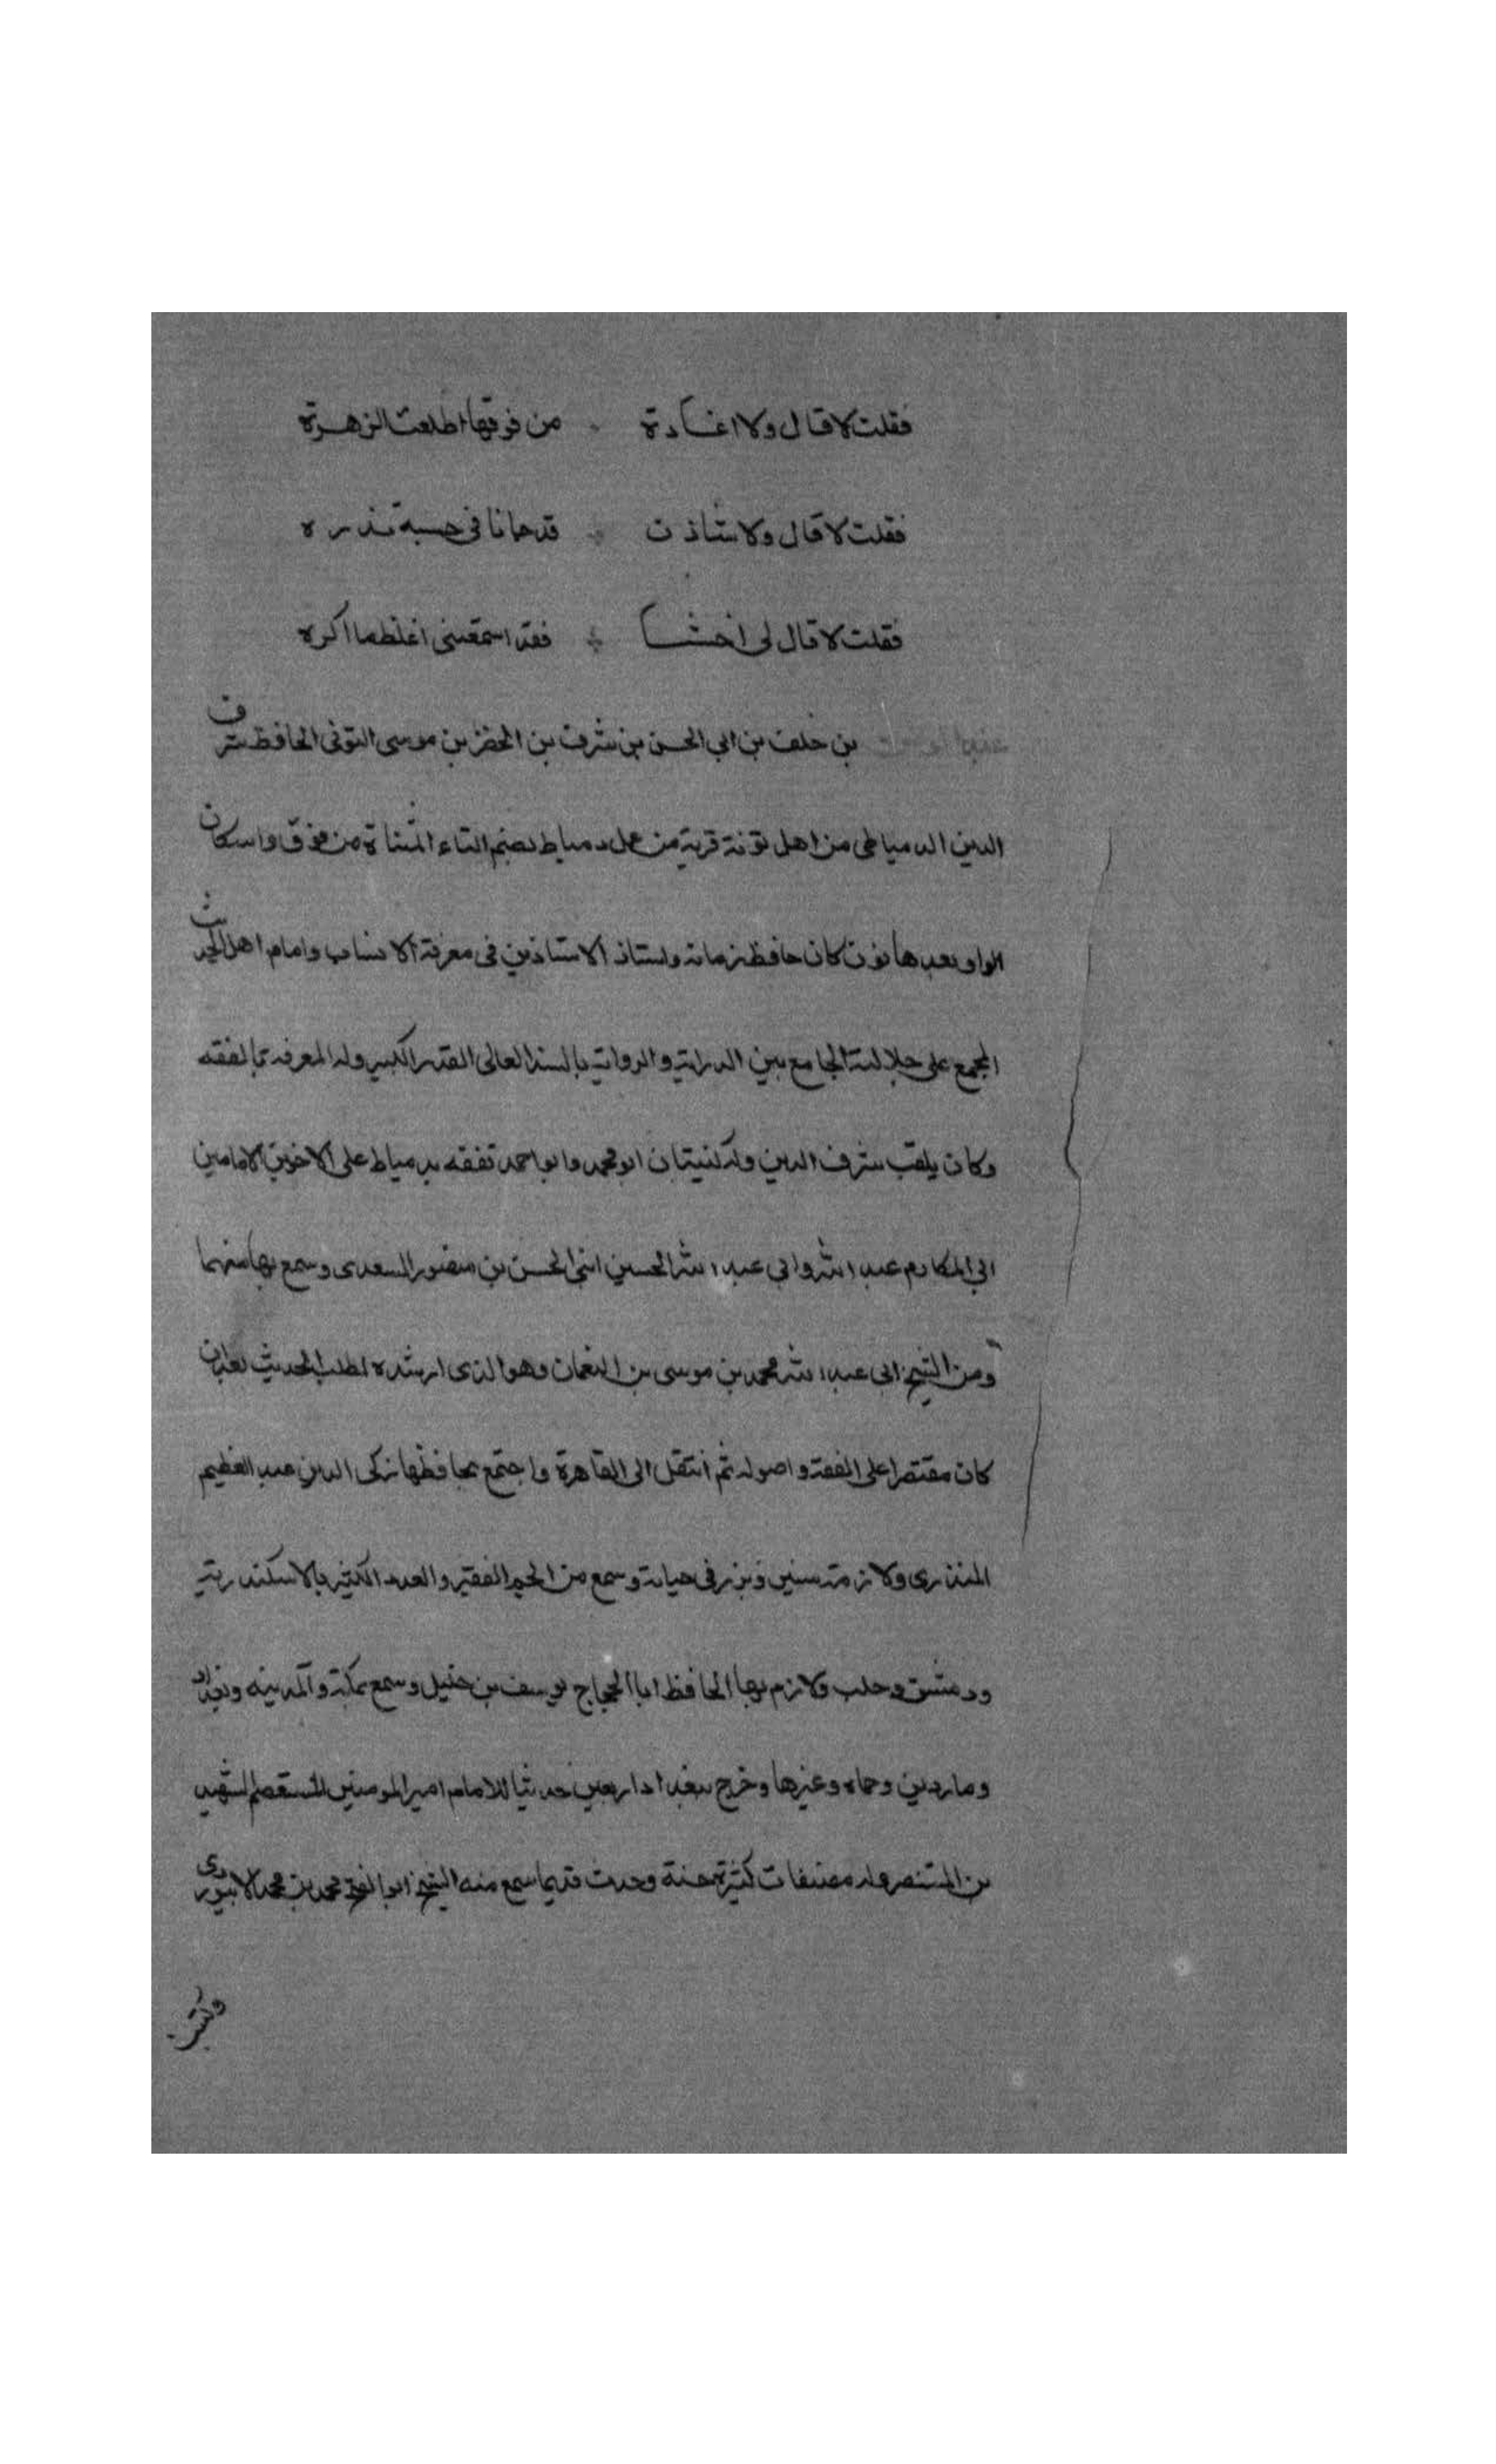 فقلت لا قال ولا غادة من فوقها اطلعت الزهرة
فقلت لا قال ولا شاذن قد حانا في حسبه نذره
فقلت لا قال لى اخشا فقد اسمعنى اغلظ ما اكره
بن خلف بن ابي الحسن بن شرف بن الخضر بن موسى التونى الحافظ شرف
الدين الدمياطى من اهل تونة قرية من عمل دمياط بضم التاء المثناة من فوق واسكان
الواو بعدها نون كان حافظ زمانه واستاذ الاستاذين فى معرفة الانساب وامام اهل الحديث
المجمع على جلالته الجامع بين الدراية والرواية بالسند العالى القدر الكبير وله المعرفة بالفقه
وكان يلقب شرف الدين وله كنيتان ابو محمد وابو احمد تفقه بدمياط على الاخوين الامامين
ابي المكارم عبد الله وابي عبد الله الحسين ابنى الحسن بن منصور السعدى وسمع بها منهما
ومن الشيخ ابى عبد الله محمد بن موسى بن النعمان وهو الذى ارشده لطلب الحديث بعد ان
كان مقتصرا على الفقه واصوله ثم انتقل الى القاهرة واجتمع بحافظها زكى الدين عبد العظيم
المنذرى ولازمه سنين وبرز فى حياته وسمع من الجم الفقير والعدد الكثير بالاسكندرية
ودمشق وحلب ولازم بها الحافظ ابا الحجاج يوسف بن خليل وسمع بمكة والمدينه وبغداد
وماردين وحماه وغيرها وخرج ببغداد اربعين حديثا للامام امير المومنين المستعصم الشهيد
بن المستنصر وله مصنفات كثيرة حسنة وحدث قديما سمع منه الشيخ ابو الفتح محمد بن محمد الابيوردى